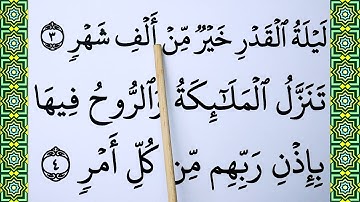 لَيْلَةُ ٱلْقَدْرِ خَيْرٌ مِّنْ أَلْفِ شَهْرٍ ٣
تَنَزَّلُ ٱلْمَلَٰٓئِكَةُ وَٱلرُّوحُ فِيهَا
بِإِذْنِ رَبِّهِم مِّن كُلِّ أَمْرٍ ٤